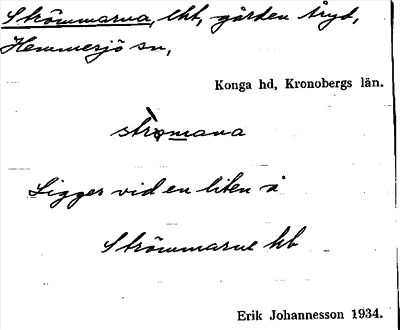 Strömmarna, lht, gården Aryd,
Hemmesjö sn,
Konga hd, Kronobergs län.
Ligger vid en liten å
Strömmarne kb
Erik Johannesson 1934.